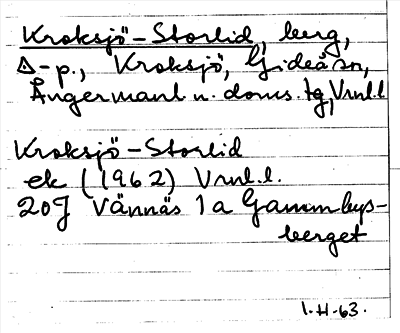 Kroksjö-Storlid, berg,
Δ-p., Kroksjö, Gideå sn,
Ångermanl. n. doms. tg, Vnl. l
Kroksjö-Storlid
ek (1962) Vnl. l.
20J Vännäs 1a Gammbys-
berget
1-H-63.